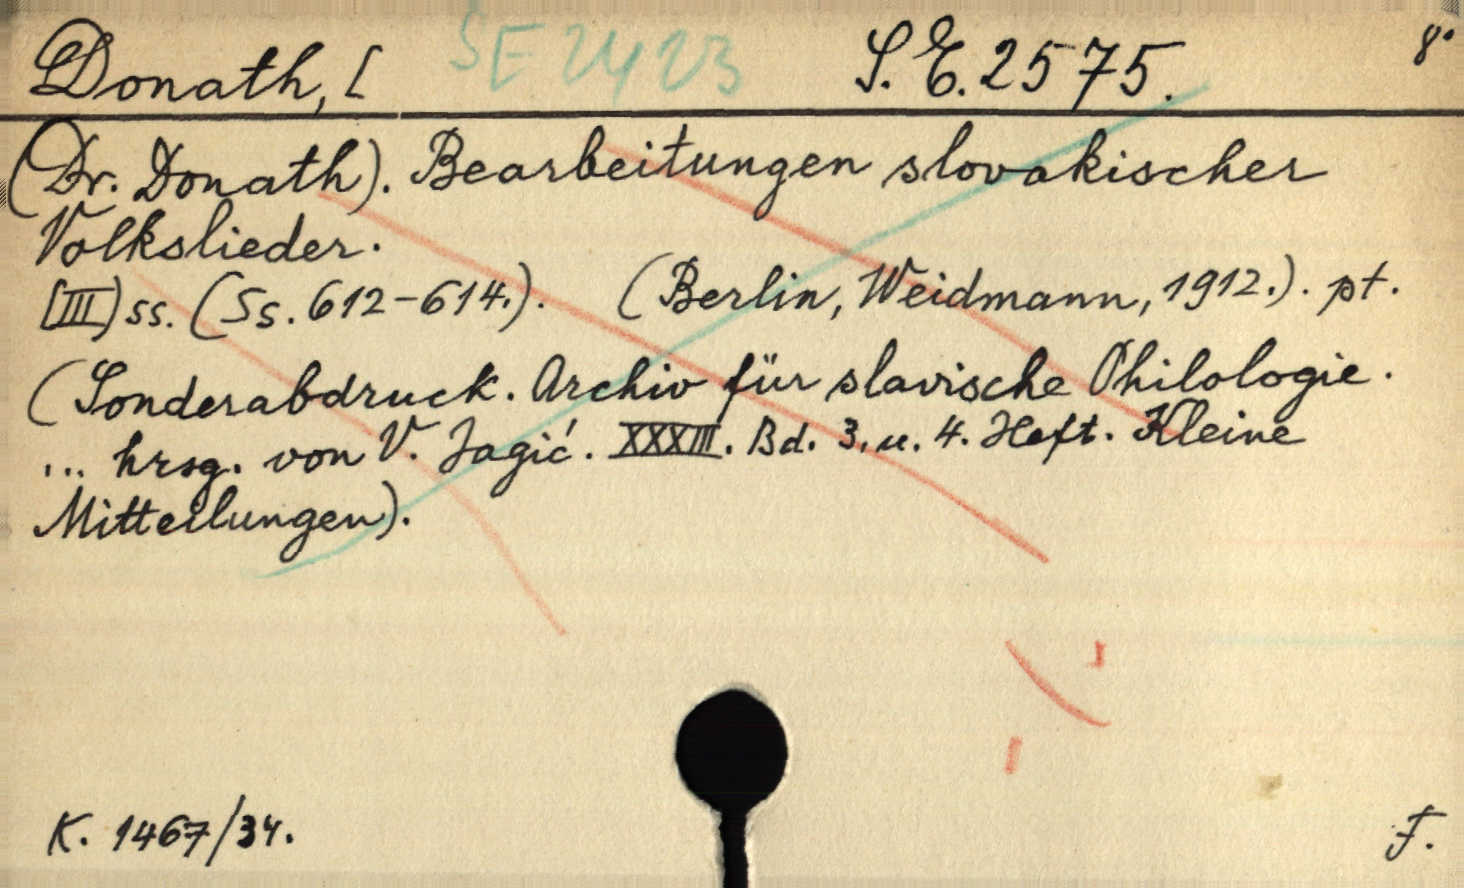 Donath, [ SE 2423 S. E. 2575. 8°
(Dr. Donath). Bearbeitungen slovakischer
Volkslieder.
[III) ss. (Ss. 612-614.). (Berlin, Weidmann, 1912.). pt.
(Sonderabdruck. Archiv für slavische Philologie.
... hrsg. von V. Jagić. XXXIII. Bd. 3. u. 4. Heft. Kleine
Mitteilungen).
K. 1467/34. F.